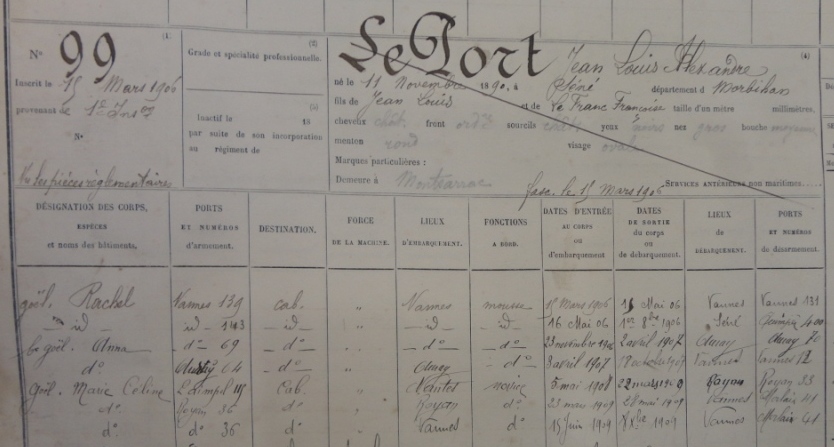 N° 99
(1)
Inscrit le 15 Mars 1906
provenant de 1re Ins on
N°
Vu les pièces réglementaires
(2)
Grade et spécialité professionnelle.
(3)
Inactif le 18
par suite de son incorporation
au régiment de
Le Port Jean Louis Alexandre
(4)
né le 11 Novembre 1890, à Séné département d Morbihan
fils de Jean Louis et de Le Franc Françoise taille d'un mètre millimètres.
cheveux chât. front ord re sourcils chât. yeux nez gros bouche moyenne
menton rond visage oval
Marques particulières :
Demeure à Montsarrac fasc. le 15 Mars 1906 SERVICES ANTÉRIEURS non maritimes.
DÉSIGNATION DES CORPS, ESPÈCES et noms des bâtiments.
PORTS ET NUMÉROS d'armement.
DESTINATION.
FORCE DE LA MACHINE.
LIEUX D'EMBARQUEMENT.
FONCTIONS A BORD.
DATES D'ENTRÉE AU CORPS ou d'embarquement
DATES DE SORTIE du corps ou de débarquement.
LIEUX de DÉBARQUEMENT.
PORTS ET NUMÉROS de désarmement.
goël. Rachel Vannes 139 cab. " Vannes mousse 15 Mars 1906 15 Mai 06 Vannes Vannes 131
id id 1143 id " id id 16 Mai 06 1er 8bre 1906 Séné 400
goël. Anna d° 69 d° " d° d° 23 novembre 1906 2 avril 1907 Auray Auray 70
d° Auray 64 d° " Auray d° 8 avril 1907 18 octobre 1907 Vannes Vannes
Goël. Marie Céline Paimpol Cab. " Nantes novice 5 mai 1908 22 mars 1909 Royan Royan 33
d° Royan 36 d° " Royan d° 23 mars 1909 28 mai 1909 Vannes Morlaix 41
d° d° 36 d° Vannes d° 15 juin 1909 1909 Vannes Morlaix 41